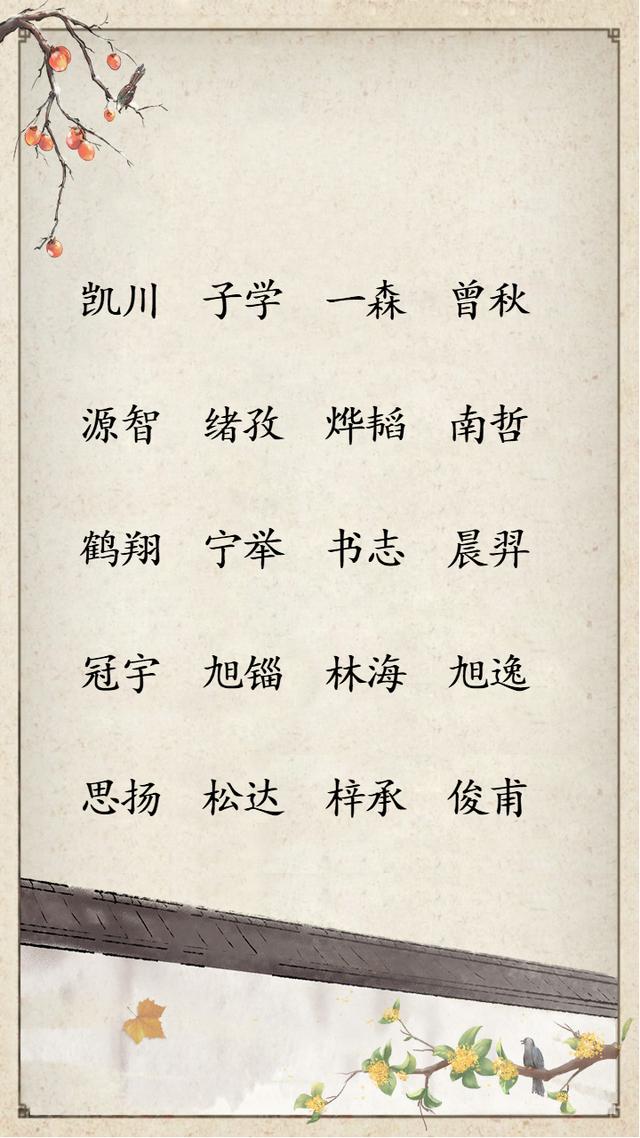 凯川 子学 一森 曾秋
源智 绪孜 烨韬 南哲
鹤翔 宁举 书志 晨羿
冠宇 旭锱 林海 旭逸
思扬 松达 梓承 俊甫